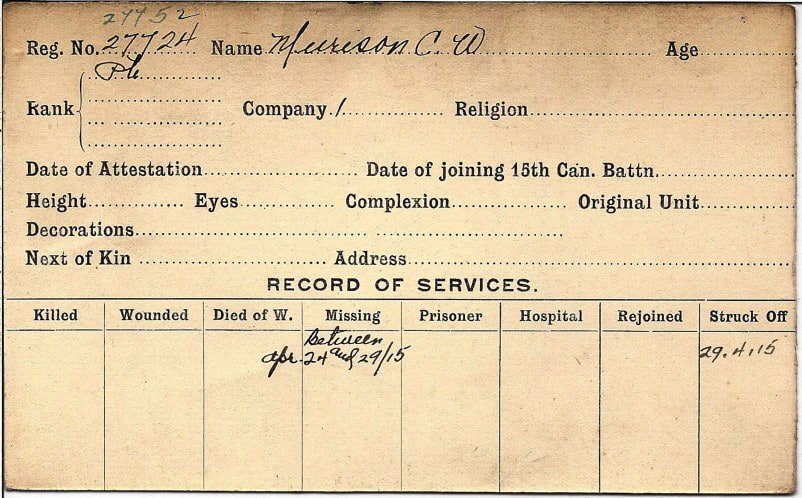 27752
Reg. No. 27724 Name Murison C. W Age
Pte
Rank
Company 1 Religion
Date of Attestation Date of joining 15th Can. Battn.
Height Eyes Complexion Original Unit
Decorations
Next of Kin Address
RECORD OF SERVICES.
Killed Wounded Died of W. Missing Prisoner Hospital Rejoined Struck Off
Between
Apr. 24 and 29/15 29.4.15